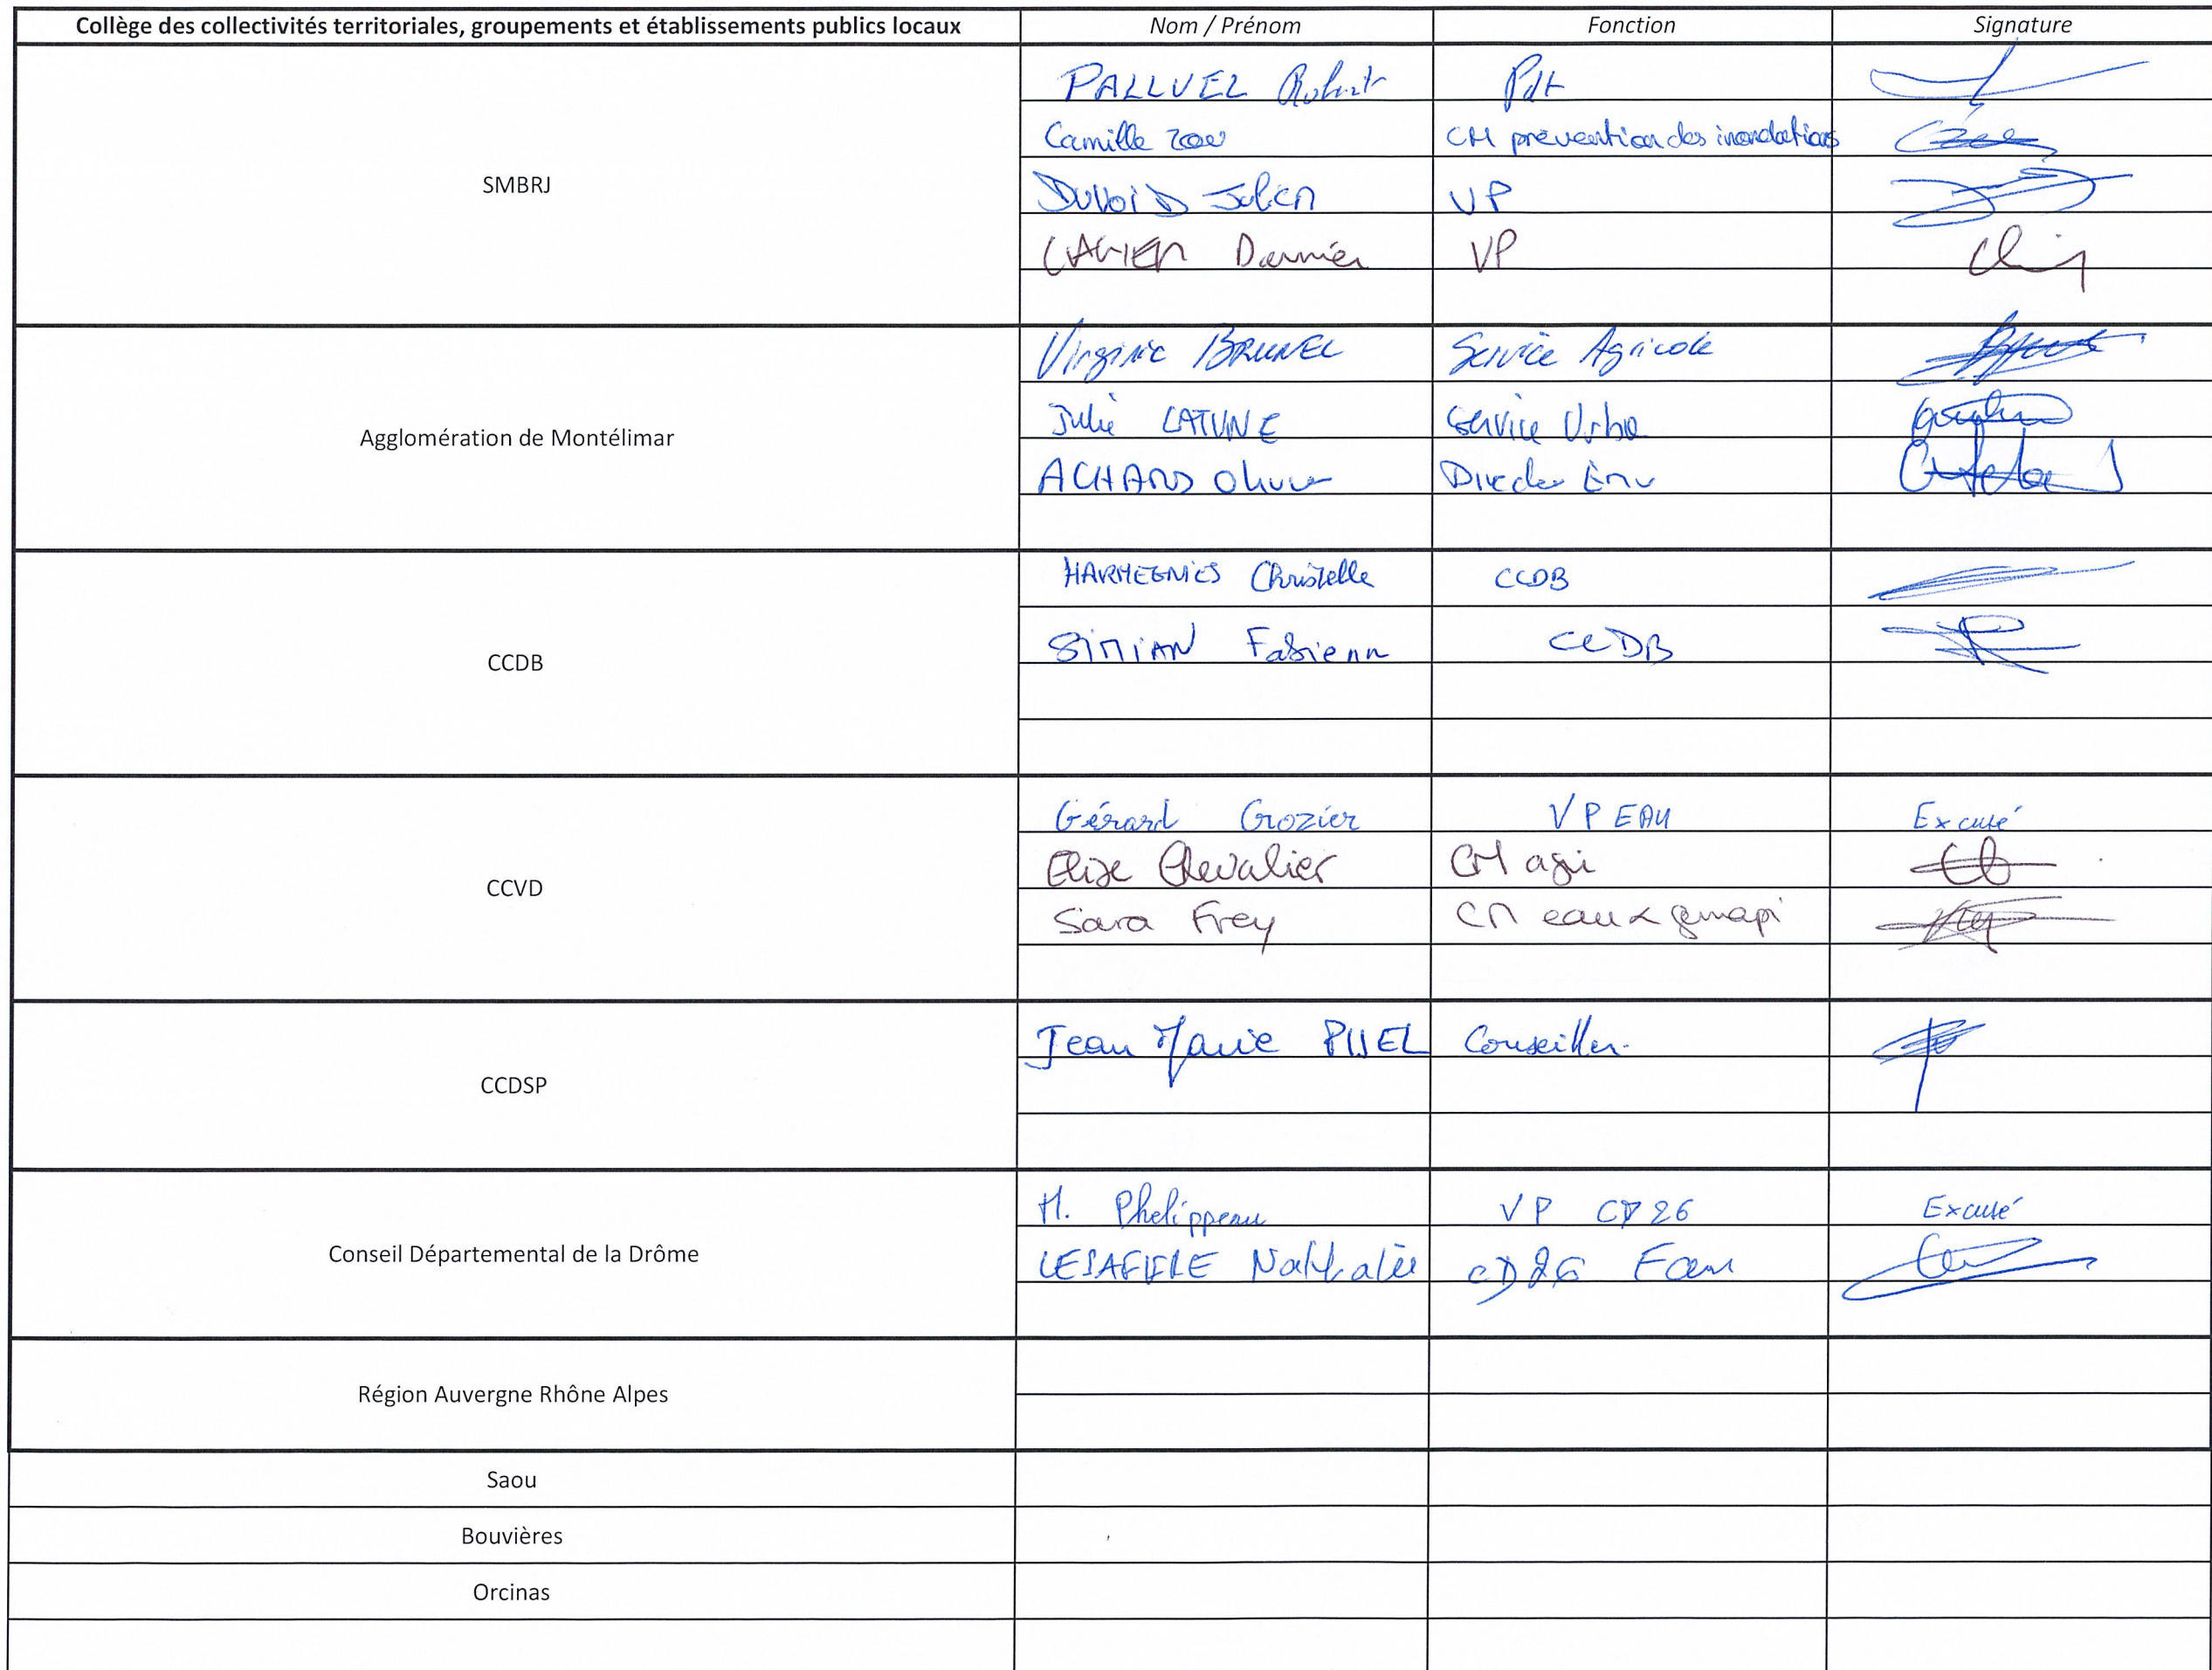 Collège des collectivités territoriales, groupements et établissements publics locaux Nom / Prénom Fonction Signature
SMBRJ
PALLUEL Robert Pdt
Camille CM prévention des inondations
VP
Damien VP
Agglomération de Montélimar
Virginie BRUNEL Service Agricole
Julie LATUNE Service Urba
ACHARD Olivier Env
CCDB
HARMEGNIES Christelle CCDB
SIMIAN Fabienn CCDB
CCVD
Gérard Crozier VP EAU Excusé
Elise Chevalier CM agri
Sara Frey CM eau & gemapi
CCDSP
Jean Marie Conseiller
Conseil Départemental de la Drôme
M. Phelippeau VP CD26 Excusé
Nathalie CD26 Eau
Région Auvergne Rhône Alpes
Saou
Bouvières
Orcinas